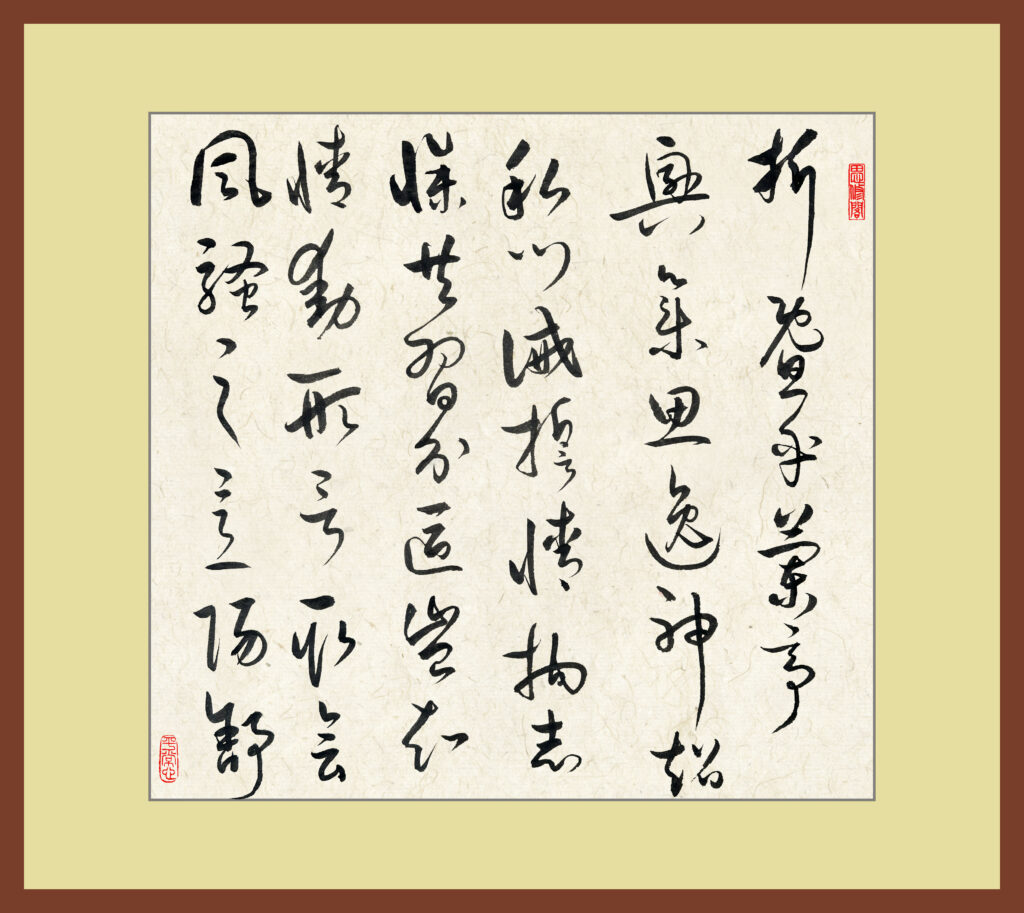 折暨乎蘭亭
興集思逸神超
私門誡誓情拘志
慘共習分區豈知
情動形言取會
風騷之意陽舒
平常心